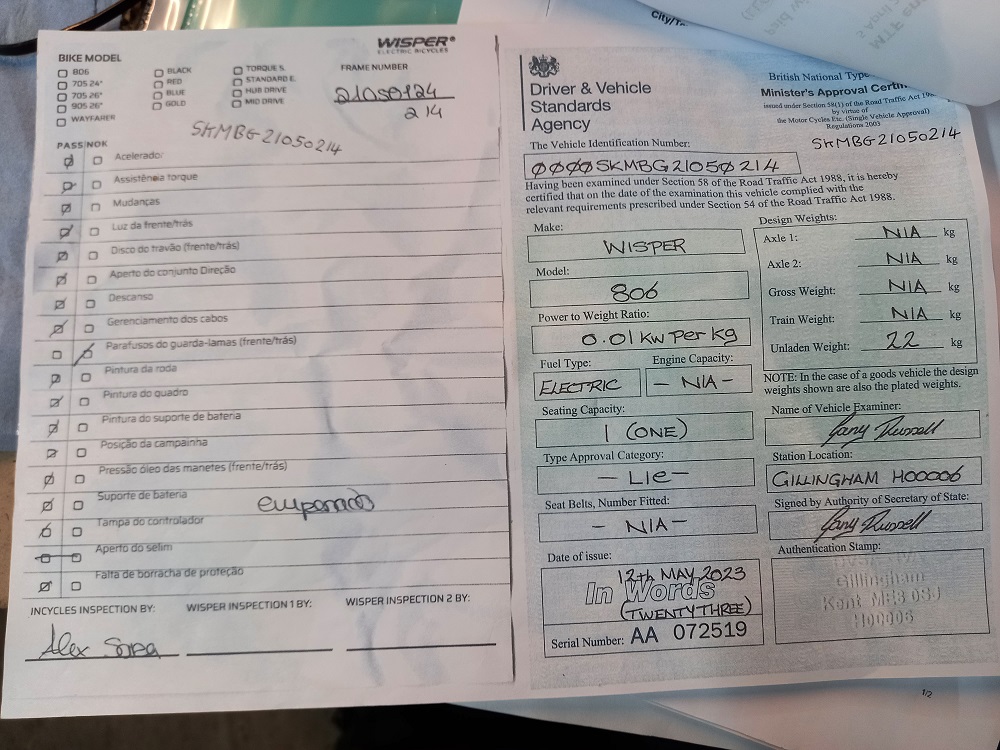 City/T
WISPER®
ELECTRIC BICYCLES
BIKE MODEL
806
705 24"
705 26"
905 26"
WAYFARER
BLACK
RED
BLUE
GOLD
TORQUE S.
STANDARD E.
HUB DRIVE
MID DRIVE
FRAME NUMBER
21050124
214
SKMBG21050214
PASS NOK
Acelerador
Assistência torque
Mudanças
Luz da frente/trás
Disco do travão (frente/trás)
Aperto do conjunto Direção
Descanso
Gerenciamento dos cabos
Parafusos do guarda-lamas (frente/trás)
Pintura da roda
Pintura do quadro
Pintura do suporte de bateria
Posição da campainha
Pressão óleo das manetes (frente/trás)
Suporte de bateria
Tampa do controlador
Aperto do selim
Falta de borracha de proteção
INCYCLES INSPECTION BY:
WISPER INSPECTION 1 BY:
WISPER INSPECTION 2 BY:
Alex
Driver & Vehicle
Standards
Agency
British National Type
Minister's Approval Certif
issued under Section 58(1) of the Road Traffic Act 198
by virtue of
the Motor Cycles Etc. (Single Vehicle Approval)
Regulations 2003
SKMBG21050214
The Vehicle Identification Number:
0000SKMBG21050214
Having been examined under Section 58 of the Road Traffic Act 1988, it is hereby
certified that on the date of the examination this vehicle complied with the
relevant requirements prescribed under Section 54 of the Road Traffic Act 1988.
Make:
WISPER
Model:
806
Power to Weight Ratio:
0.01 KW Per Kg
Fuel Type:
ELECTRIC
Engine Capacity:
- N/A -
Seating Capacity:
1 (ONE)
Type Approval Category:
- L1e -
Seat Belts, Number Fitted:
- N/A -
Date of issue:
12th MAY 2023
In Words
(TWENTY THREE)
Serial Number: AA 072519
Design Weights:
Axle 1: N/A kg
Axle 2: N/A kg
Gross Weight: N/A kg
Train Weight: N/A kg
Unladen Weight: 22 kg
NOTE: In the case of a goods vehicle the design
weights shown are also the plated weights.
Name of Vehicle Examiner:
Gary Russell
Station Location:
GILLINGHAM H00006
Signed by Authority of Secretary of State:
Gary Russell
Authentication Stamp:
Gillingham
Kent
H00006
1/2